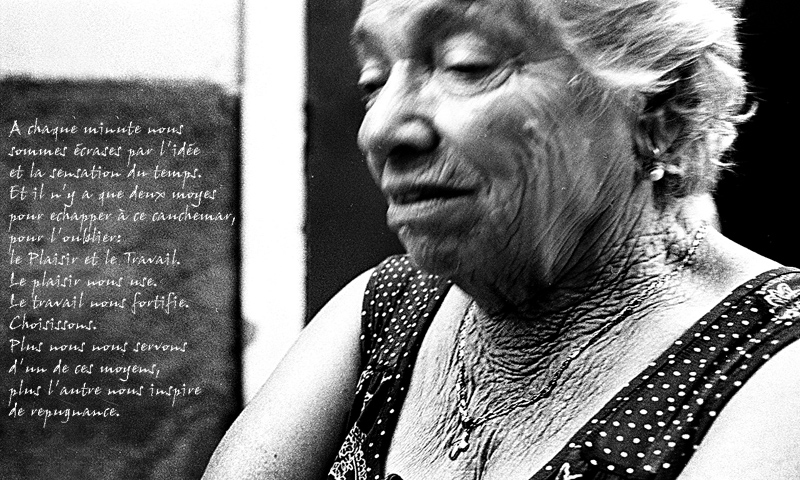 A chaque minute nous
sommes écrases par l'idée
et la sensation du temps.
Et il n'y a que deux moyes
pour echapper à ce cauchemar,
pour l'oublier:
le Plaisir et le Travail.
Le plaisir nous use.
Le travail nous fortifie.
Choisissons.
Plus nous nous servons
d'un de ces moyens,
plus l'autre nous inspire
de repugnance.